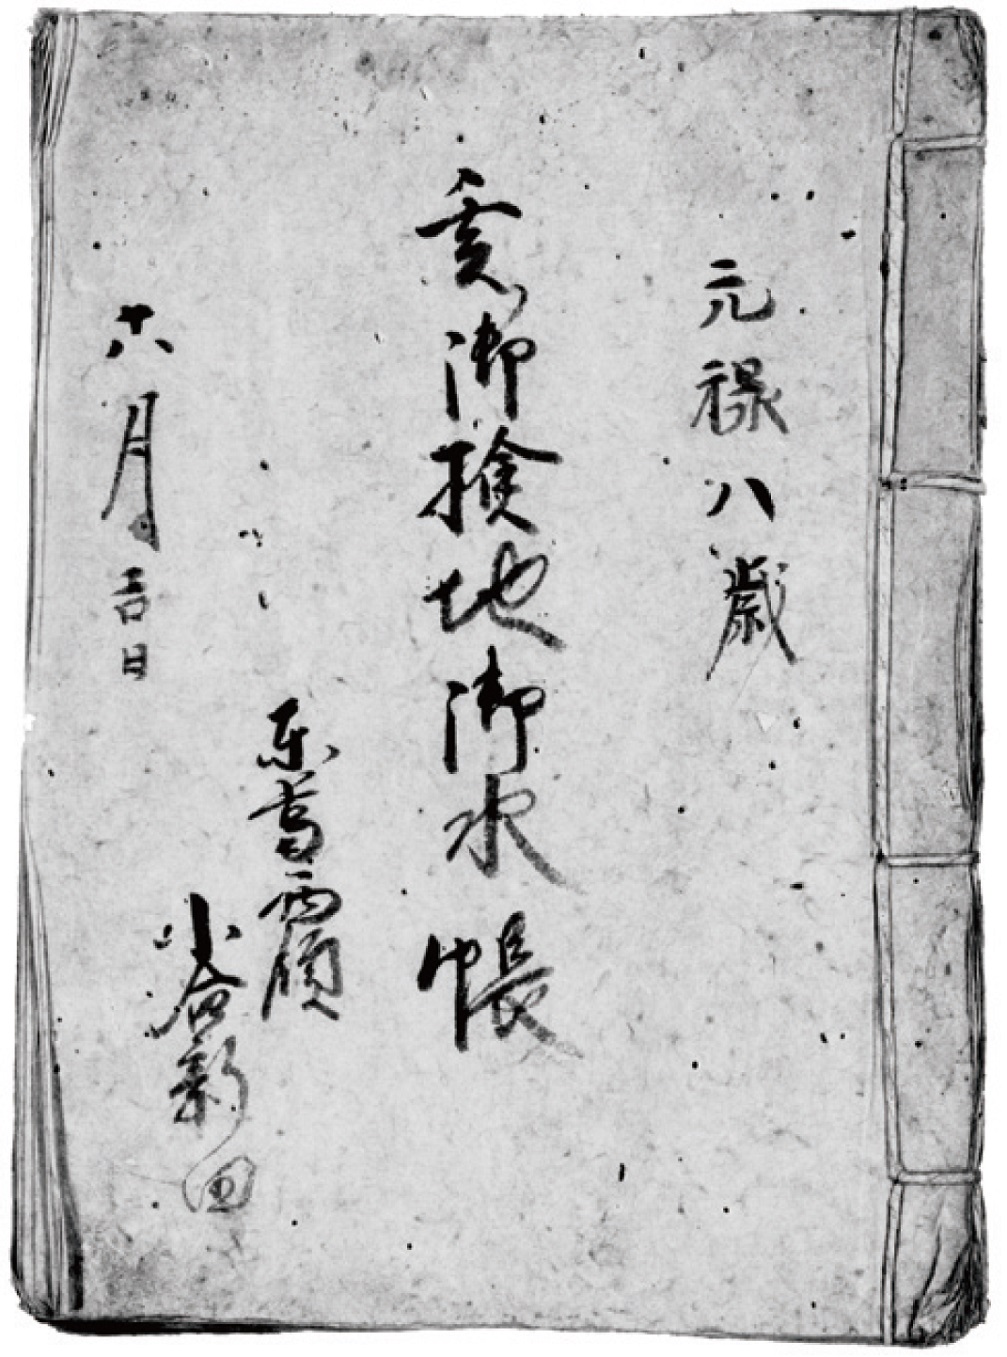 元禄八歳
亥御検地御水帳
東葛西領
小合新田
六月吉日